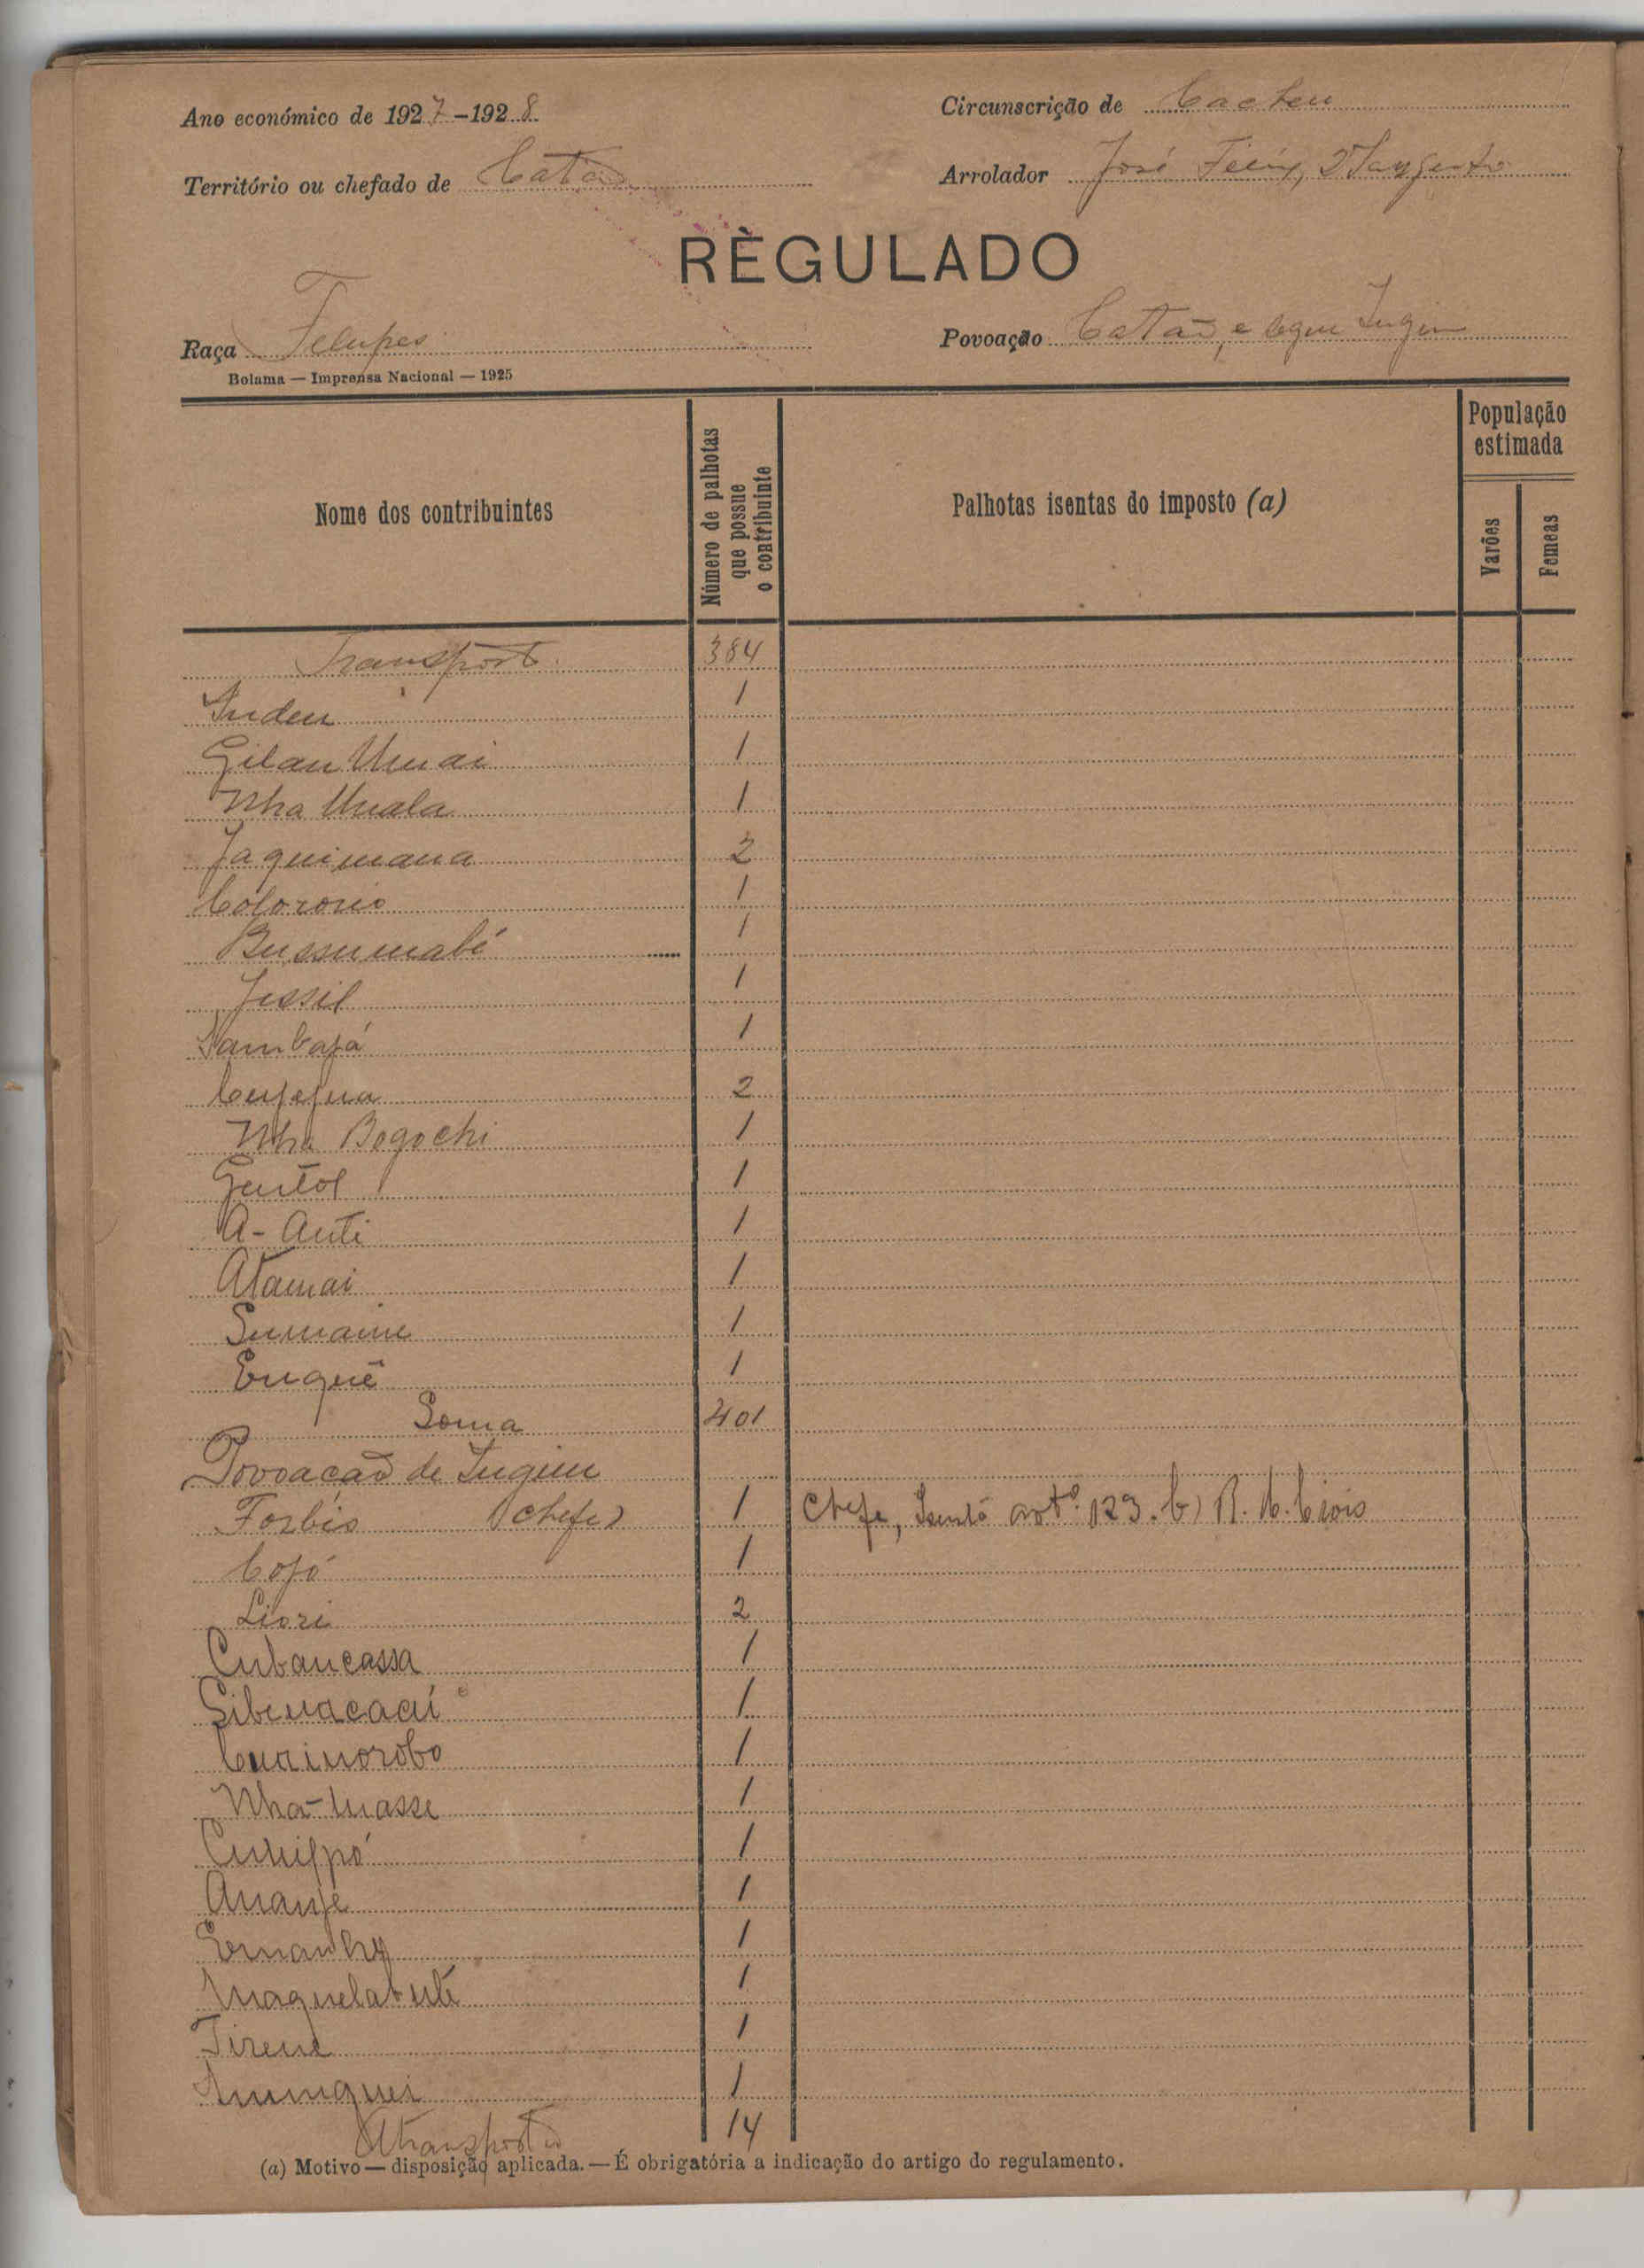 Ano económico de 1927-1928
Circunscrição de Cacheu
Território ou chefado de Catão
Arrolador José Felix, 2º Sargento
RÈGULADO
Raça Felupes
Povoação Catão, e Jugim
Bolama — Imprensa Nacional — 1925
Nome dos contribuintes
Número de palhotas que possue o contribuinte
Palhotas isentas do imposto (a)
População estimada
Varões
Femeas
Transporte 384
Inden 1
Gilan Umai 1
Nha Uuala 1
Jaquimana 2
Colororeio 1
Bussumabé 1
Jessil 1
Sambajá 1
Cujejua 2
Nha Bogochi 1
Gentol 1
A-Anti 1
Atamai 1
Sumaine 1
Enquê 1
Soma 401
Povoação de Jugim
Forbis (chefe) 1 Chefe, Isento artº. 123. b) R. N. Civis
Cojó 1
Liori 2
Cubancassa 1
Sibenacaai 1
Curinorobo 1
Nha-Masse 1
Cuhilpó 1
Ananje 1
1
1
Tirene 1
Anunquei 1
A transportar 14
(a) Motivo — disposição aplicada. — É obrigatória a indicação do artigo do regulamento.